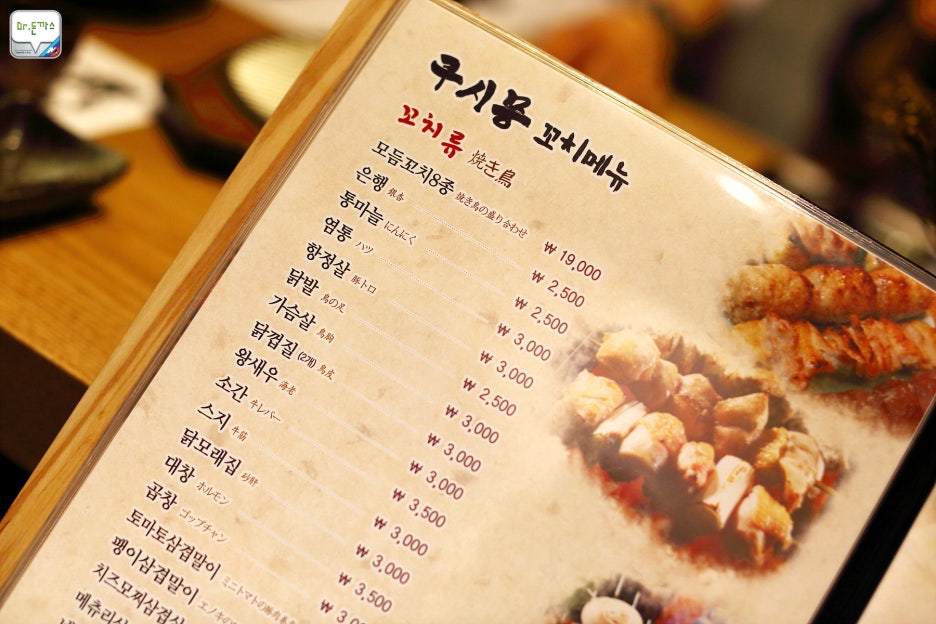 Dr.돈까스
쿠시몽 꼬치메뉴
꼬치류 焼き鳥
모듬꼬치8종 焼き鳥の盛り合わせ ₩ 19,000
은행 銀杏 ₩ 2,500
통마늘 にんにく ₩ 2,500
염통 ハツ ₩ 3,000
항정살 豚トロ ₩ 3,000
닭발 鳥の足 ₩ 2,500
가슴살 鳥胸 ₩ 3,000
닭껍질 (2개) 鳥皮 ₩ 3,000
왕새우 海老 ₩ 3,000
소간 牛レバー ₩ 3,500
스지 牛筋 ₩ 3,000
닭모래집 砂肝 ₩ 3,000
대창 ホルモン ₩ 3,500
곱창 ゴップチャン ₩ 3,00
토마토삼겹말이 ミニトマトの豚肉巻
팽이삼겹말이 エノキの
치즈모찌삼겹
메츄리